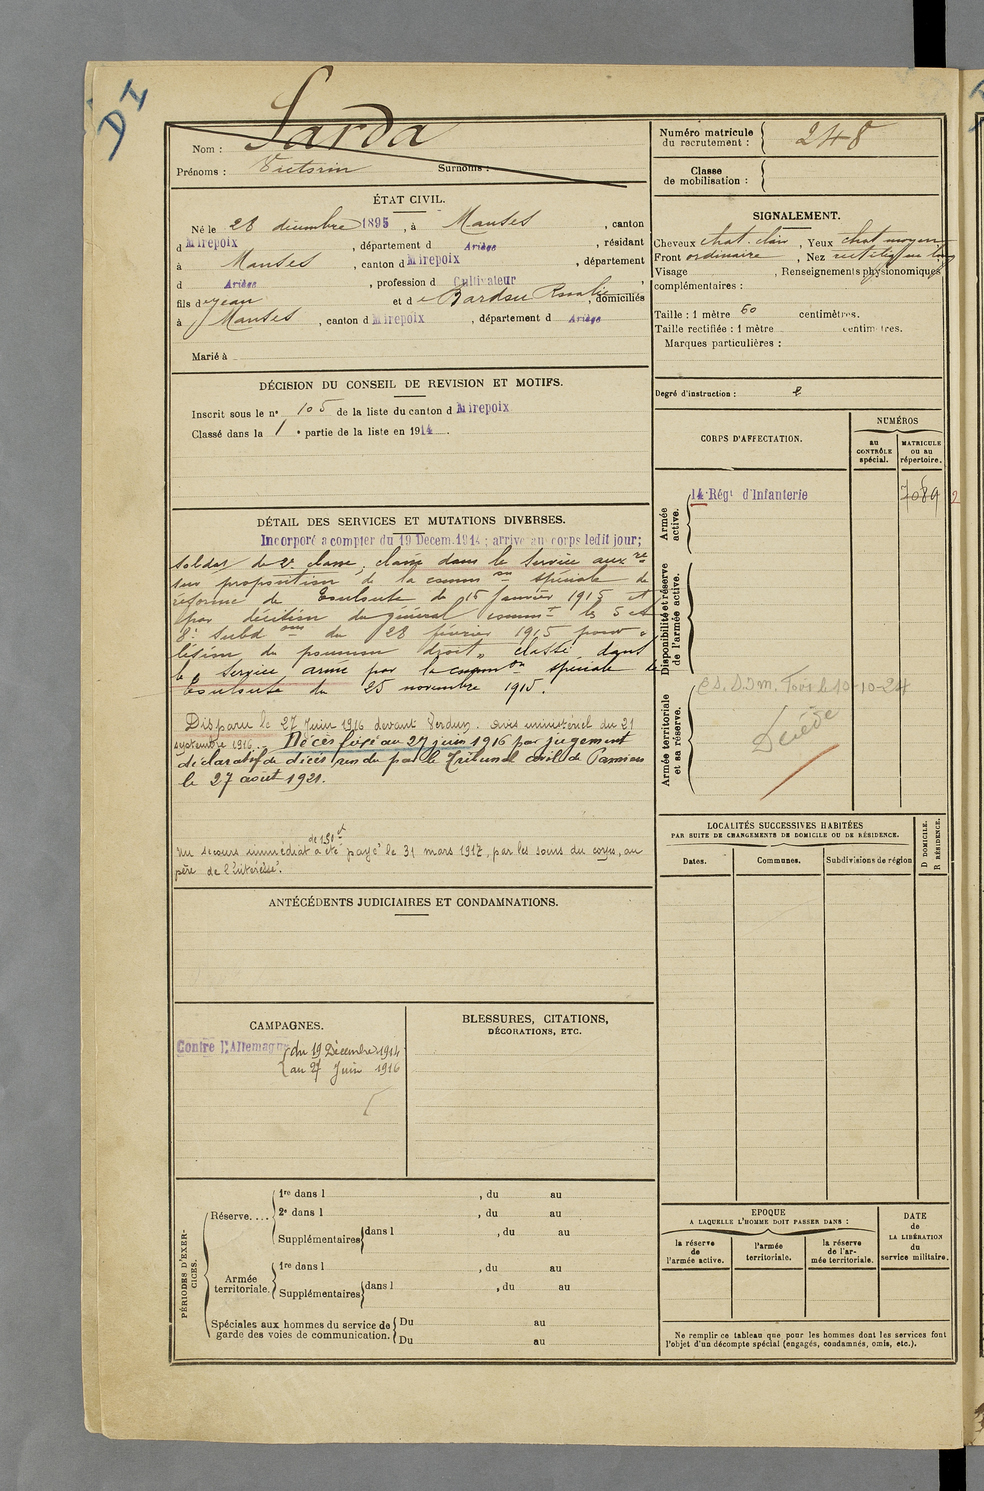 D I
Nom : Sarda
Prénoms : Victorin Surnoms :
Numéro matricule du recrutement : 248
Classe de mobilisation :
ÉTAT CIVIL.
Né le 28 décembre 1895, à Manses, canton
d Mirepoix, département d Ariège, résidant
à Manses, canton d Mirepoix, département
d Ariège, profession d Cultivateur
fils de Jean et de Bardou Rosalie, domiciliés
à Manses, canton d Mirepoix, département d Ariège
Marié à
SIGNALEMENT.
Cheveux chat. clair, Yeux chat moyen
Front ordinaire, Nez rectiligne
Visage , Renseignements physionomiques
complémentaires :
Taille : 1 mètre 60 centimètres.
Taille rectifiée : 1 mètre centimètres.
Marques particulières :
DÉCISION DU CONSEIL DE REVISION ET MOTIFS.
Inscrit sous le n° 105 de la liste du canton d Mirepoix
Classé dans la 1 e partie de la liste en 1914.
Degré d'instruction : 2
CORPS D'AFFECTATION.
NUMÉROS
au CONTRÔLE spécial.
MATRICULE ou au répertoire.
Armée active.
14 Régt d'Infanterie
Disponibilité et réserve de l'armée active.
Armée territoriale et sa réserve.
10-10-24
Décédé
DÉTAIL DES SERVICES ET MUTATIONS DIVERSES.
Incorporé a compter du 19 Décem. 1914 ; arrivé au corps ledit jour;
soldat de 2e classe, classé dans le service auxre
sur proposition de la commson spéciale de
réforme de Toulouse du 15 janvier 1915 et
par décision du général commt les 5 et
8e subdons du 28 février 1915 pour "
lésion du poumon droit", classé dans
le service armé par la common spéciale de
Toulouse du 25 novembre 1915.
Disparu le 27 Juin 1916 devant Verdun. avis ministériel du 21
septembre 1916. Décès fixé au 27 juin 1916 par jugement
déclaratif de décès rendu par le Tribunal civil de Pamiers
le 27 août 1921.
de 150f
Un secours immédiat a été payé le 31 mars 1917, par les soins du corps, au
père de l'intéressé.
LOCALITÉS SUCCESSIVES HABITÉES
PAR SUITE DE CHANGEMENTS DE DOMICILE OU DE RÉSIDENCE.
Dates. Communes. Subdivisions de région
D DOMICILE.
R RÉSIDENCE.
ANTÉCÉDENTS JUDICIAIRES ET CONDAMNATIONS.
CAMPAGNES.
Contre l'Allemagne du 19 Décembre 1914
au 27 Juin 1916
BLESSURES, CITATIONS,
DÉCORATIONS, ETC.
PÉRIODES D'EXERCICES.
Réserve....
1re dans l , du au
2e dans l , du au
Supplémentaires dans l , du au
Armée territoriale.
1re dans l , du au
Supplémentaires dans l , du au
Spéciales aux hommes du service de
garde des voies de communication.
Du au
Du au
EPOQUE
A LAQUELLE L'HOMME DOIT PASSER DANS :
la réserve de l'armée active.
l'armée territoriale.
la réserve de l'armée territoriale.
DATE
de
LA LIBÉRATION
du
service militaire.
Ne remplir ce tableau que pour les hommes dont les services font
l'objet d'un décompte spécial (engagés, condamnés, omis, etc.).